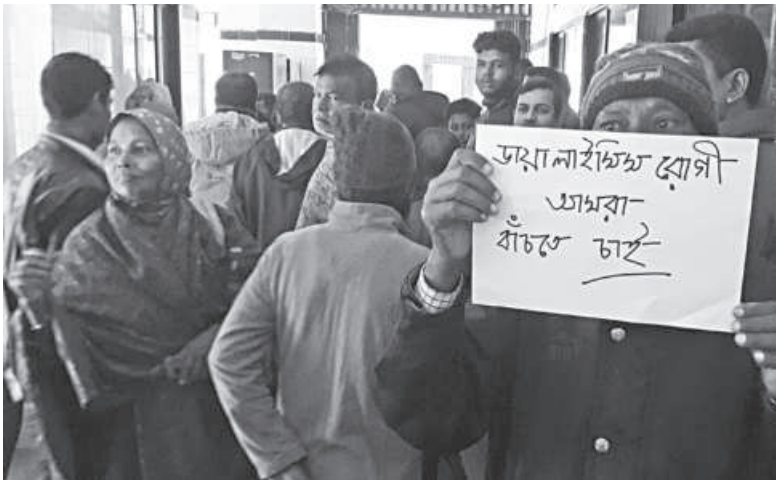 ডায়ালাইসিস রোগী
আমরা
বাঁচতে চাই